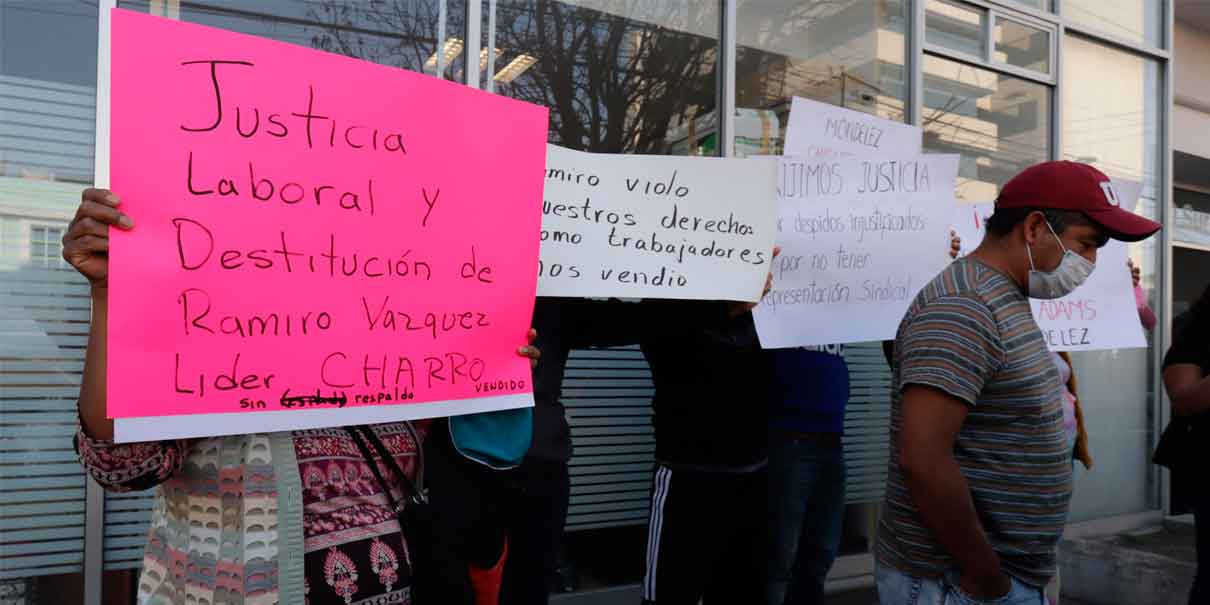 Justicia
Laboral y
Destitución de
Ramiro Vázquez
Lider CHARRO VENDIDO
sin respaldo
miro violo
uestros derechos
omo trabajadores
nos vendio
MONDELEZ
IJIMOS JUSTICIA
despidos injustificados
por no tener
epresentación Sindical
ADAMS
DELEZ
U